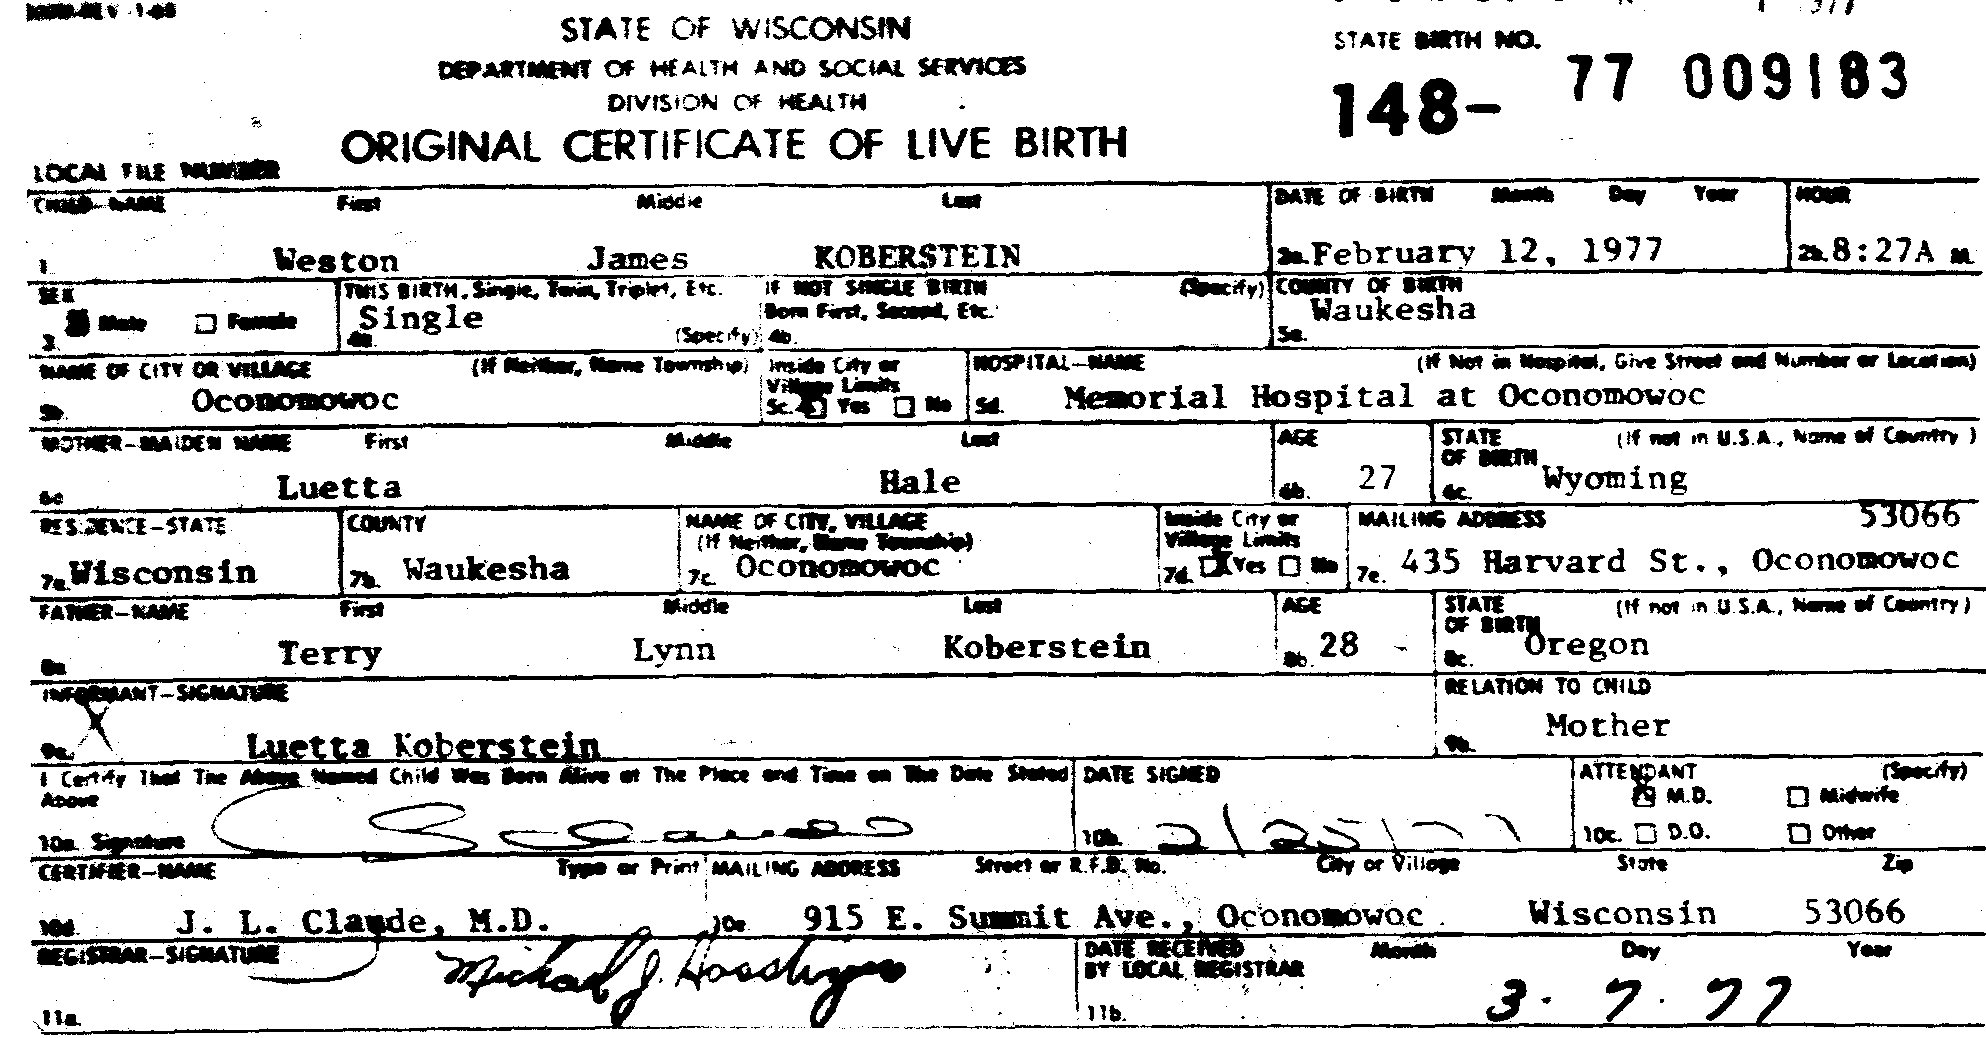 STATE OF WISCONSIN
DEPARTMENT OF HEALTH AND SOCIAL SERVICES
DIVISION OF HEALTH
ORIGINAL CERTIFICATE OF LIVE BIRTH
STATE BIRTH NO.
148- 77 009183
LOCAL FILE NUMBER
CHILD-NAME First Middle Last DATE OF BIRTH Month Day Year HOUR
1. Weston James KOBERSTEIN 2a. February 12, 1977 2b. 8:27A M.
SEX THIS BIRTH, Single, Twin, Triplet, Etc. IF NOT SINGLE BIRTH (Specify) COUNTY OF BIRTH
3. Male Female 4a. Single (Specify) Born First, Second, Etc. 4b. 5a. Waukesha
NAME OF CITY OR VILLAGE (If Neither, Name Township) Inside City or Village Limits HOSPITAL-NAME (If Not in Hospital, Give Street and Number or Location)
5b. Oconomowoc 5c. Yes No 5d. Memorial Hospital at Oconomowoc
MOTHER-MAIDEN NAME First Middle Last AGE STATE OF BIRTH (If not in U.S.A., Name of Country)
6a. Luetta Hale 6b. 27 6c. Wyoming
RESIDENCE-STATE COUNTY NAME OF CITY, VILLAGE (If Neither, Name Township) Inside City or Village Limits MAILING ADDRESS 53066
7a. Wisconsin 7b. Waukesha 7c. Oconomowoc 7d. X Yes No 7e. 435 Harvard St., Oconomowoc
FATHER-NAME First Middle Last AGE STATE OF BIRTH (If not in U.S.A., Name of Country)
8a. Terry Lynn Koberstein 8b. 28 8c. Oregon
INFORMANT-SIGNATURE RELATION TO CHILD
9a. X Luetta Koberstein 9b. Mother
I Certify That The Above Named Child Was Born Alive at The Place and Time on The Date Stated DATE SIGNED ATTENDANT (Specify)
Above X M.D. Midwife
10a. Signature 10b. 2/25/77 10c. D.O. Other
CERTIFIER-NAME Type or Print MAILING ADDRESS Street or R.F.D. No. City or Village State Zip
10d. J. L. Claude, M.D. 10e 915 E. Summit Ave., Oconomowoc Wisconsin 53066
REGISTRAR-SIGNATURE DATE RECEIVED Month Day Year
Michael J. BY LOCAL REGISTRAR
11a. 11b. 3. 7. 77